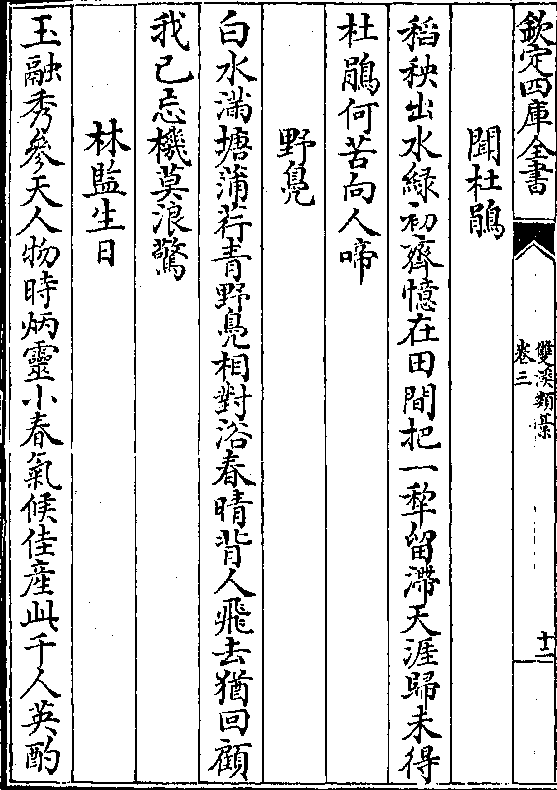 欽定四庫全書
雙溪類藁
卷三
十二
聞杜鵑
稻秧出水緑初齊憶在田間把一犂留滯天涯歸未得
杜鵑何苦向人啼
野鳬
白水滿塘蒲荇青野鳬相對浴春晴背人飛去猶回顧
我已忘機莫浪驚
林監生日
玉融秀參天人物時炳靈小春氣候佳產此千人英酌